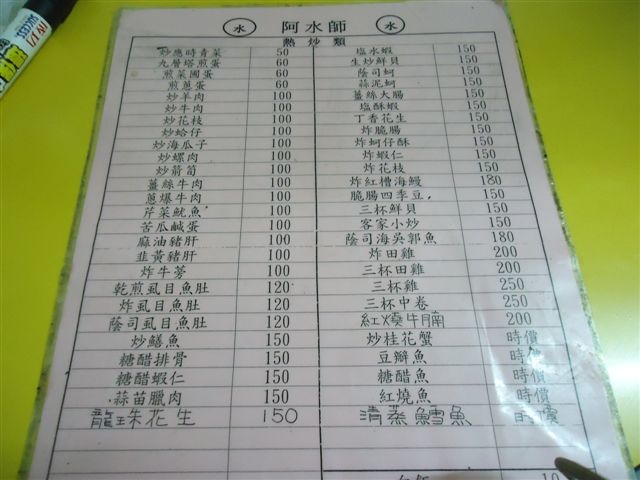 水 阿水師 水
熱炒類
炒應時青菜 50 塩水蝦 150
九層塔煎蛋 60 生炒鮮貝 150
煎菜圃蛋 60 蔭司蚵 150
煎蔥蛋 60 蒜泥蚵 150
炒羊肉 100 薑絲大腸 150
炒牛肉 100 塩酥蝦 150
炒花枝 100 丁香花生 150
炒蛤仔 100 炸脆腸 150
炒海瓜子 100 炸蚵仔酥 150
炒螺肉 100 炸蝦仁 150
炒箭筍 100 炸花枝 150
薑絲牛肉 100 炸紅槽海鰻 180
蔥爆牛肉 100 脆腸四季豆 150
芹菜魷魚 100 三杯鮮貝 150
苦瓜鹹蛋 100 客家小炒 150
麻油豬肝 100 蔭司海吳郭魚 180
韭黃豬肝 100 炸田雞 200
炸牛蒡 100 三杯田雞 200
乾煎虱目魚肚 120 三杯雞 250
炸虱目魚肚 120 三杯中卷 250
蔭司虱目魚肚 120 紅燒牛腩 200
炒鱔魚 150 炒桂花蟹 時價
糖醋排骨 150 豆瓣魚 時價
糖醋蝦仁 150 糖醋魚 時價
蒜苗臘肉 150 紅燒魚 時價
龍珠花生 150 清蒸鱈魚 時價
10